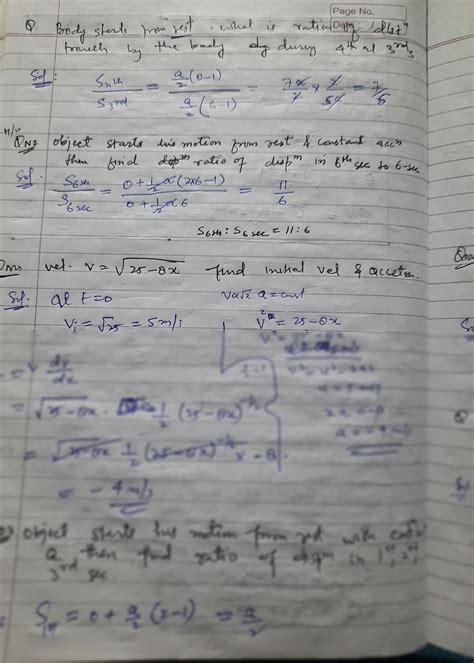 Page No.
Date
Q Body starts from rest, what is ration of distn
travels by the body dy during 4th at 3rd s
Sol: Snth / S3rd = a/2 (8-1) / a/2 (6-1) = 7x/x × x/5x = 7/5
H/W QNo object starts his motion from rest & constant accn
then find ratio of dispm in 6th sec to 6-sec
Sol S6th / S6sec = 0+1/2 a(2×6-1) / 0+1/2 a 6 = 11/6
S6th : S6sec = 11:6
vel. V=√25-8x find initial vel & acc
Sol. at t=0 a = const
Vi = √25 = 5m/s V² = 25-8x
= V dv/dx
= √25-8x . 1/2 (25-8x)^-1/2
= √25-8x 1/2 (25-8x)^-1/2 x -8
= -4m/s
object starts his motion from rest with
a then find ratio of dispm in 1st, 2nd,
3rd sec
S1st = 0 + a/2 (2-1) = a/2